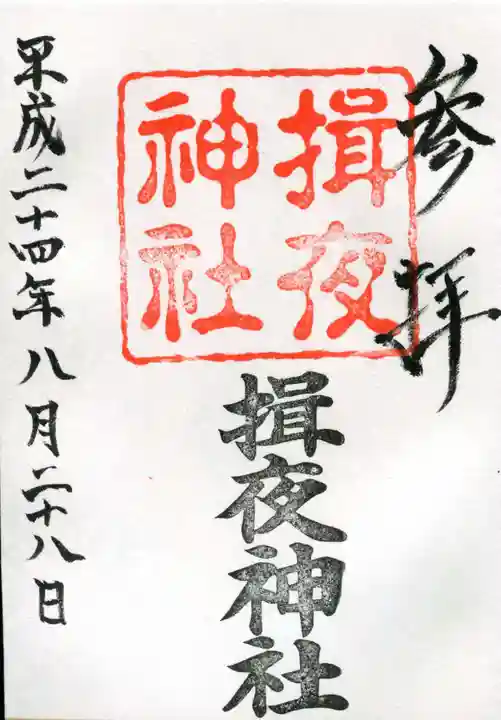 参拝
揖夜
神社
揖夜神社
平成二十四年八月二十八日